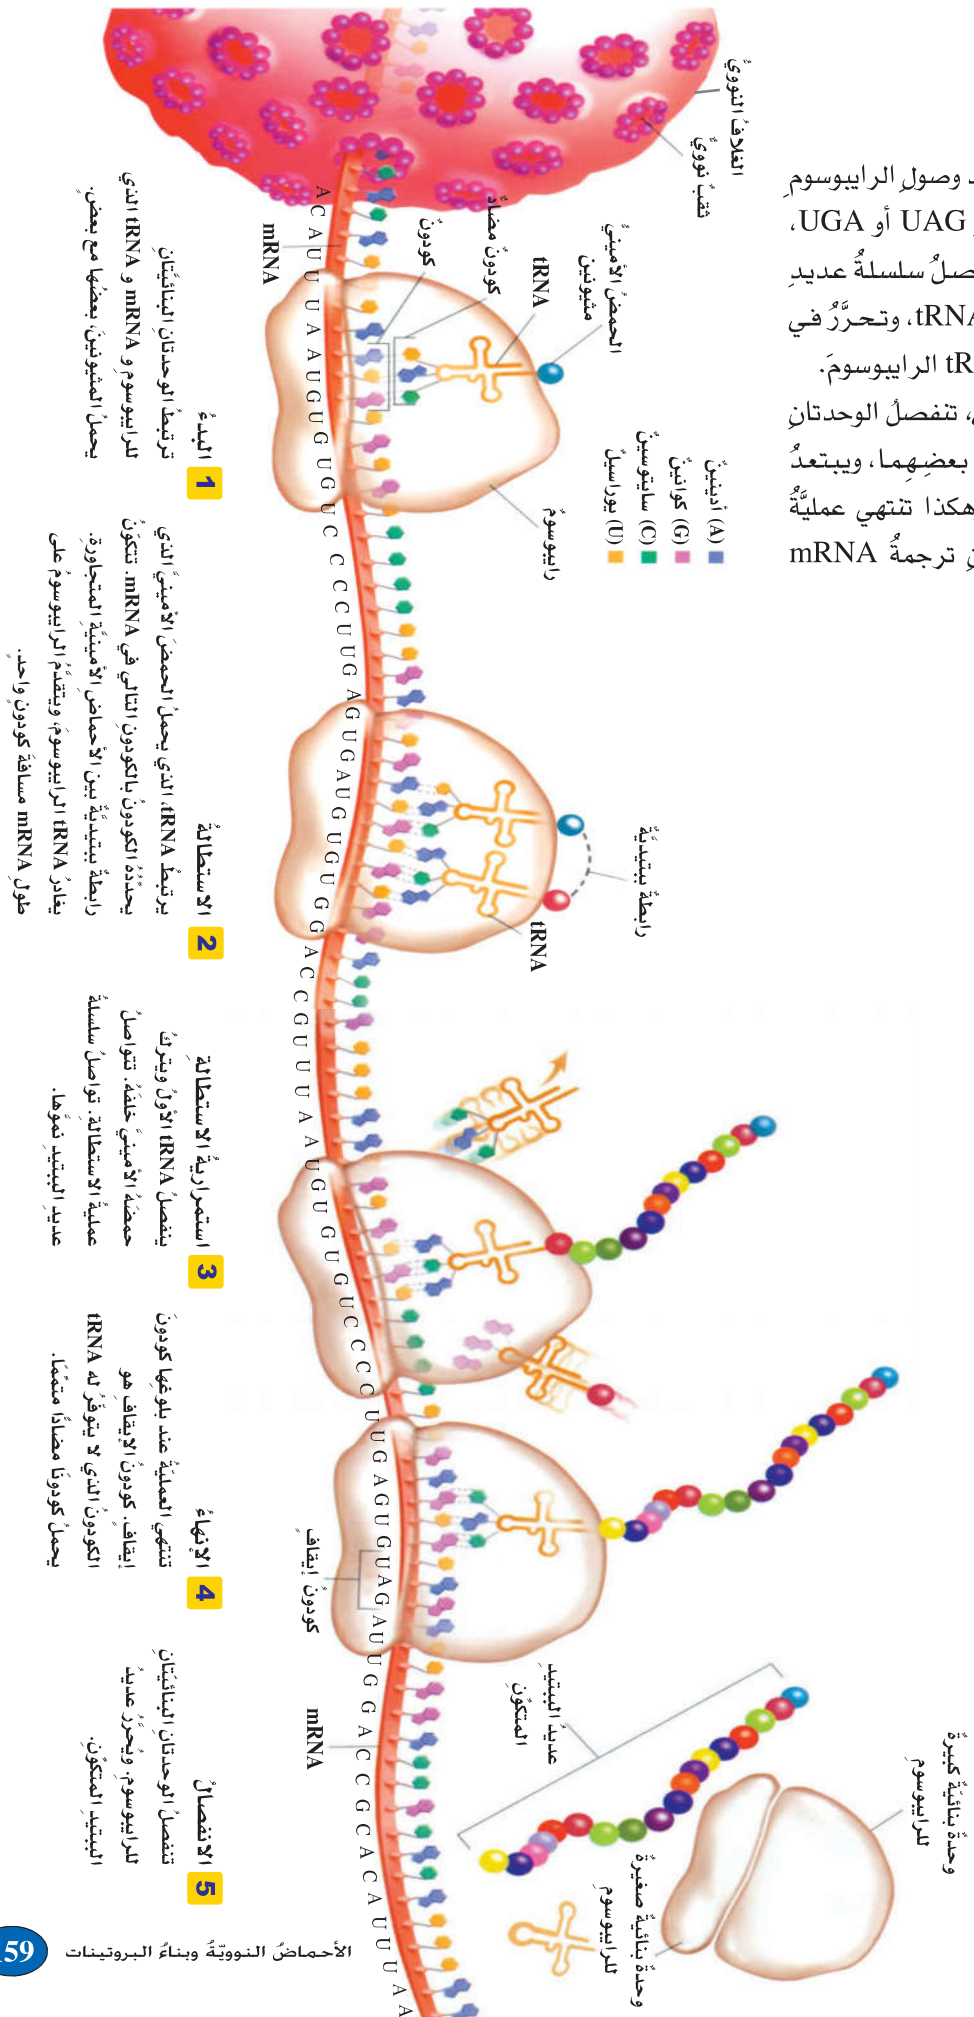 د وصولِ الرايبوسومِ
UAG أو UGA،
صلُ سلسلةُ عديدِ
tRNA، وتحرَّرُ في
tR الرايبوسومَ.
، تنفصلُ الوحدتانِ
بعضِهِما، ويبتعدُ
هكذا تنتهي عمليَّةُ
نِ ترجمةُ mRNA
الغلافُ النوويُّ
ثقبٌ نوويٌّ
الحمضُ الأمينيُّ
مثيونين
tRNA
كودونٌ مضادٌّ
كودونٌ
mRNA
(A) أدينينٌ
(G) كوانينٌ
(C) سايتوسينٌ
(U) يوراسيلٌ
رايبوسومٌ
رابطةٌ ببتيديَّةٌ
tRNA
كودونُ إيقافٍ
عديدُ الببتيدِ
المتكوِّنِ
mRNA
وحدةٌ بنائيَّةٌ كبيرةٌ
للرايبوسومِ
وحدةٌ بنائيةٌ صغيرةٌ
للرايبوسومِ
A C A U U U A A U G U G U G U C C C C U U G A G U G A U G U G U G G A C C G U U U A A U G U G U G U C C C C U U G A G U G U A G A U U G G A C C G C A C A U U U A A
1 البدءُ
ترتبطُ الوحدتانِ البنائيَّتانِ
للرايبوسومِ و mRNA و tRNA الذي
يحملُ المثيونينَ، بعضُها مع بعضٍ.
2 الاستطالةُ
يرتبطُ tRNA، الذي يحملُ الحمضَ الأمينيَّ الذي
يحدِّدُهُ الكودونُ بالكودونِ التالي في mRNA. تتكوَّنُ
رابطةٌ ببتيديَّةٌ بين الأحماضِ الأمينيَّةِ المتجاورةِ.
يغادرُ tRNA الرايبوسومَ، ويتقدَّمُ الرايبوسومُ على
طولِ mRNA مسافةَ كودونٍ واحدٍ.
3 استمراريةُ الاستطالةِ
ينفصلُ tRNA الأولُ ويتركُ
حمضَهُ الأمينيَّ خلفَهُ. تتواصلُ
عمليةُ الاستطالةِ. تواصلُ سلسلةُ
عديدِ الببتيدِ نموَّها.
4 الإنهاءُ
تنتهي العمليَّةُ عند بلوغِها كودونَ
إيقافٍ. كودونُ الإيقافِ هو
الكودونُ الذي لا يتوفَّرُ له tRNA
يحملُ كودونًا مضادًّا متمِّمًا.
5 الانفصالُ
تنفصلُ الوحدتانِ البنائيَّتانِ
للرايبوسومِ. ويُحرَّرُ عديدُ
الببتيدِ المتكوِّنِ.
الأحماضُ النوويَّةُ وبناءُ البروتينات 159